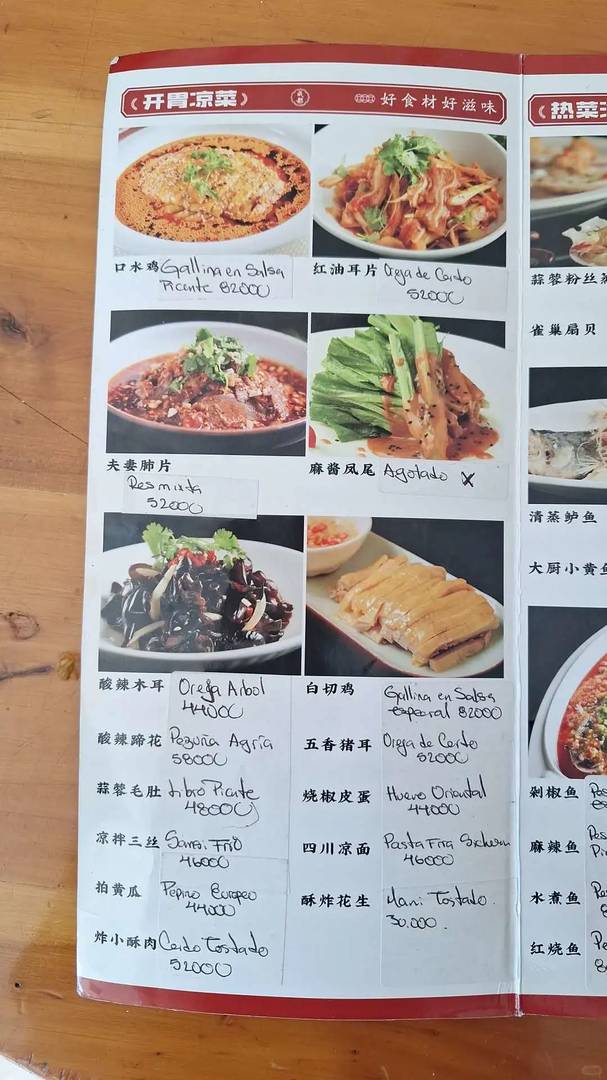 《开胃凉菜》
好食材好滋味
口水鸡 Gallina en Salsa
Picante 52000
红油耳片 Oreja de Cerdo
52000
夫妻肺片
Res mixta
52000
麻酱凤尾 Agotado X
酸辣木耳 Oreja Arbol
44000
白切鸡 Gallina en Salsa
especial 52000
酸辣蹄花 Pezuña Agria
58000
五香猪耳 Oreja de Cerdo
52000
蒜蓉毛肚 Libro Picante
48000
烧椒皮蛋 Huevo Oriental
44000
凉拌三丝 Sansi Frio
46000
四川凉面 Pasta Fria
46000
拍黄瓜 Pepino Europeo
44000
酥炸花生 Mani Tostado.
30.000.
炸小酥肉 Cerdo Tostado
52000
《热菜
蒜蓉粉丝
雀巢扇贝
清蒸鲈鱼
大厨小黄鱼
剁椒鱼
麻辣鱼
水煮鱼
红烧鱼